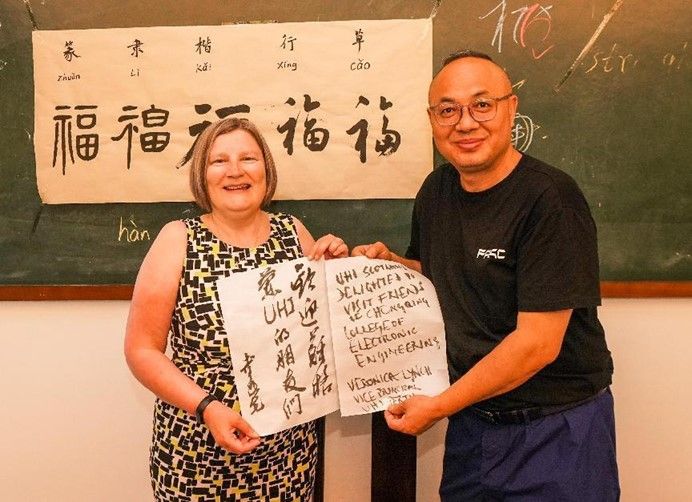 篆 隶 楷 行 草
Zhuàn Lì Kǎi Xíng Cǎo
福 福 福 福 福
hàn
欢迎蘇格
蘭UHI的朋友们
UHI SCOTLAND
DELIGHTED TO
VISIT FRIENDS
OF CHONGQING
COLLEGE OF
ELECTRONIC
ENGINEERING
VERONICA LYNCH
VICE PRINCIPAL
UHI PERTH